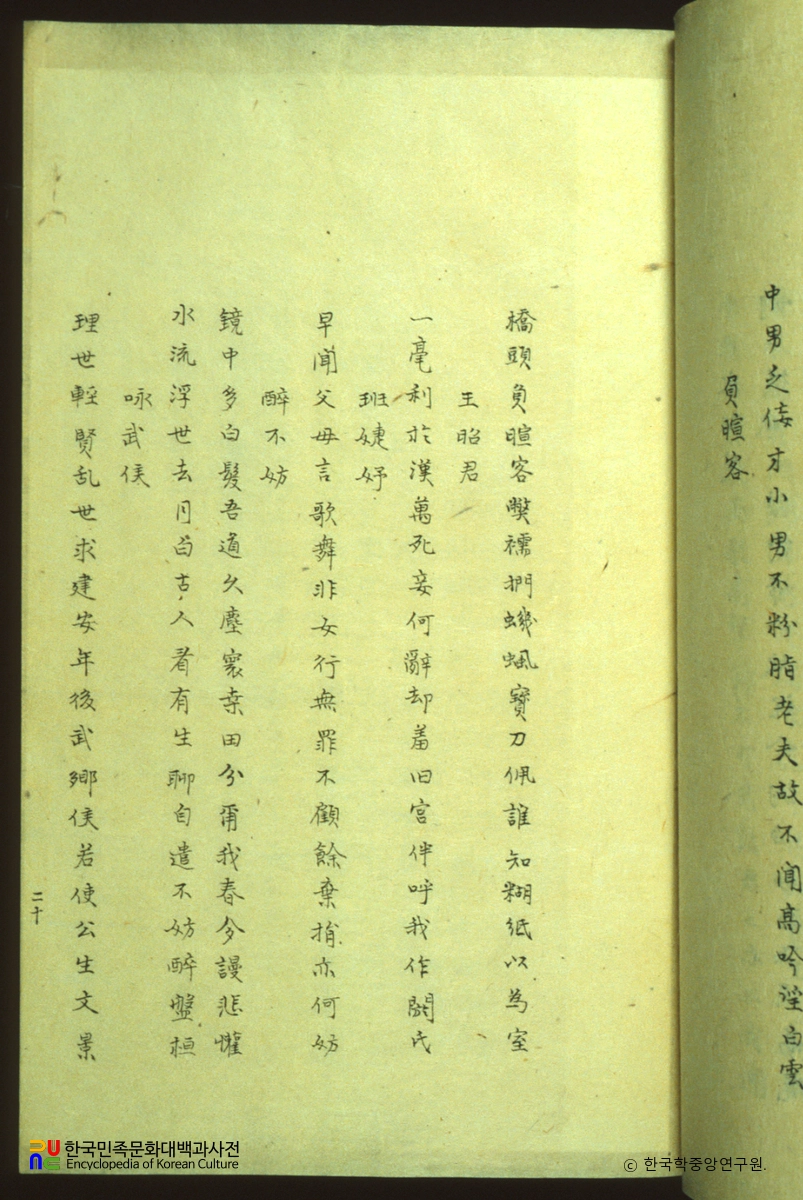 中男乏倿才小男不粉脂老夫故不聞高吟望白雲
負暄客
橋頭負暄客獘襦捫蟣蝨寶刀佩誰知糊紙以為室
王昭君
一毫利於漢萬死妾何辭却羞旧宮伴呼我作閼氏
班婕妤
早聞父母言歌舞非女行無罪不顧餘棄捐亦何妨
醉不妨
鏡中多白髮吾道久塵寰幸田分甯我春今謾悲懽
水流浮世去月白古人看有生聊自遣不妨醉盤桓
咏武侯
理世輕賢乱世求建安年後武鄉侯若使公生文景
二十
한국민족문화대백과사전
Encyclopedia of Korean Culture
ⓒ 한국학중앙연구원.